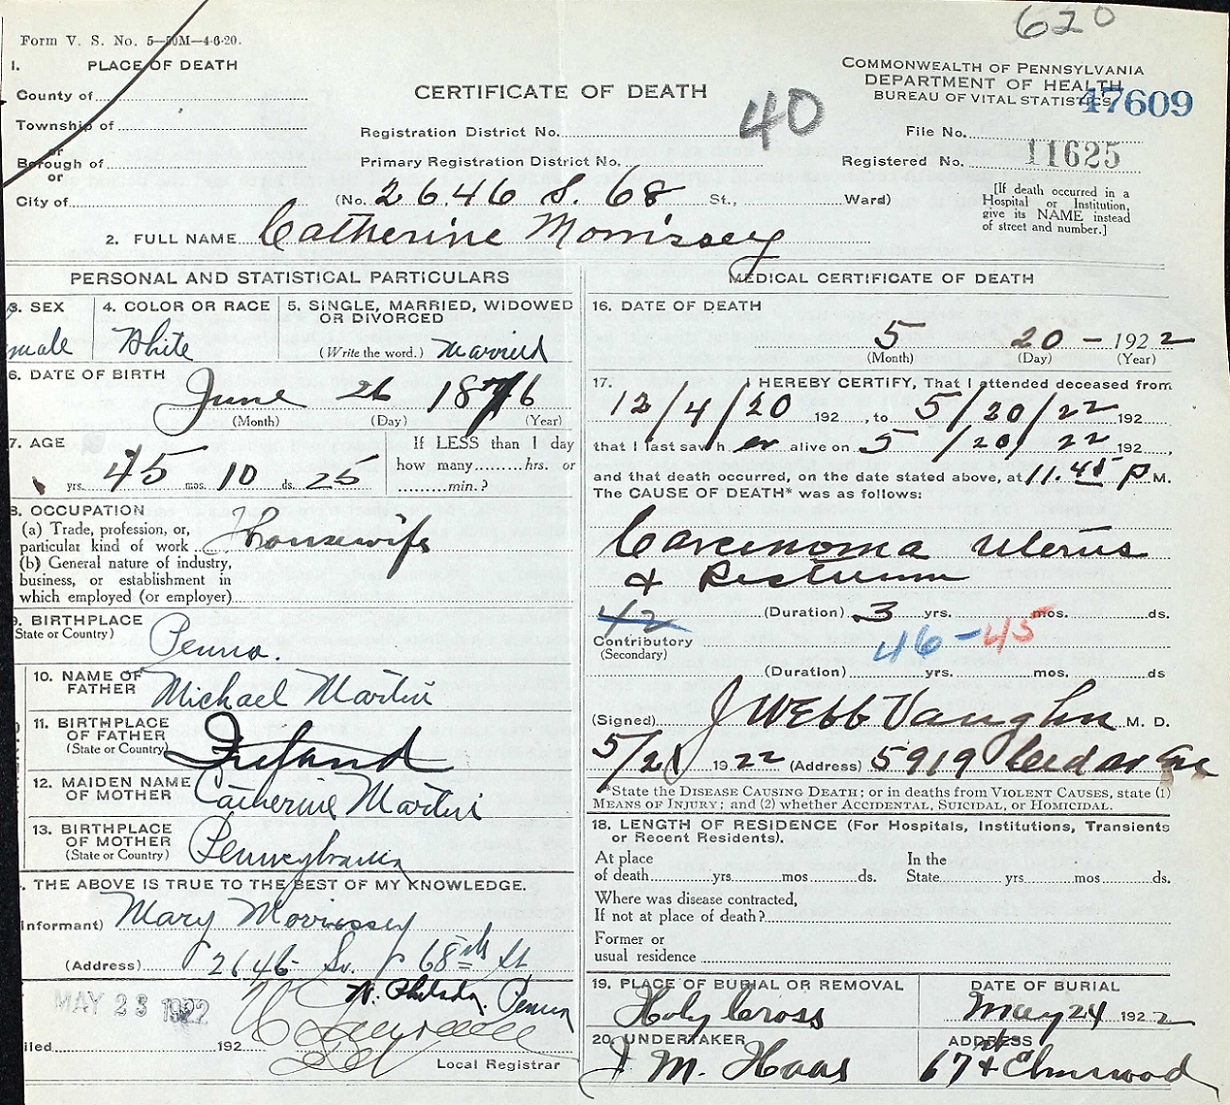 620
Form V. S. No. 5—50M—4-6-20.
1. PLACE OF DEATH
County of
Township of
or
Borough of
or
City of
CERTIFICATE OF DEATH
COMMONWEALTH OF PENNSYLVANIA
DEPARTMENT OF HEALTH
BUREAU OF VITAL STATISTICS
47609
Registration District No. 40
File No.
Primary Registration District No.
Registered No. 11625
(No. 2646 S. 68 St., Ward)
[If death occurred in a
Hospital or Institution,
give its NAME instead
of street and number.]
2. FULL NAME Catherine Morrissey
PERSONAL AND STATISTICAL PARTICULARS
3. SEX
male
4. COLOR OR RACE
White
5. SINGLE, MARRIED, WIDOWED
OR DIVORCED
(Write the word.) Married
6. DATE OF BIRTH
June 26 1876
(Month) (Day) (Year)
7. AGE
45 yrs. 10 mos. 25 ds.
If LESS than 1 day
how many hrs. or
min.?
8. OCCUPATION
(a) Trade, profession, or,
particular kind of work Housewife
(b) General nature of industry,
business, or establishment in
which employed (or employer)
9. BIRTHPLACE
State or Country) Penna.
10. NAME OF
FATHER Michael Martin
11. BIRTHPLACE
OF FATHER
(State or Country) Ireland
12. MAIDEN NAME
OF MOTHER Catherine Martin
13. BIRTHPLACE
OF MOTHER
(State or Country) Pennsylvania
. THE ABOVE IS TRUE TO THE BEST OF MY KNOWLEDGE.
Informant) Mary Morrissey
(Address) 2646 So. 68th St
W. Philada. Penna
MAY 23 1922
iled 192
Local Registrar
MEDICAL CERTIFICATE OF DEATH
16. DATE OF DEATH
5 20 - 1922
(Month) (Day) (Year)
17. I HEREBY CERTIFY, That I attended deceased from
12/4/20 192 , to 5/20/22 192
that I last saw h er alive on 5/20/22 192 ,
and that death occurred, on the date stated above, at 11.45 P M.
The CAUSE OF DEATH* was as follows:
Carcinoma Uterus
& Rectum
42 (Duration) 3 yrs. mos. ds.
Contributory 46-45
(Secondary)
(Duration) yrs. mos. ds
(Signed) J Webb Vaughn M. D.
5/21 1922 (Address) 5919 Cedar Ave
*State the DISEASE CAUSING DEATH; or in deaths from VIOLENT CAUSES, state (1)
MEANS OF INJURY; and (2) whether ACCIDENTAL, SUICIDAL, or HOMICIDAL.
18. LENGTH OF RESIDENCE (For Hospitals, Institutions, Transients
or Recent Residents).
At place
of death yrs mos ds.
In the
State yrs mos ds.
Where was disease contracted,
If not at place of death?
Former or
usual residence
19. PLACE OF BURIAL OR REMOVAL
Holy Cross
DATE OF BURIAL
May 24 1922
20. UNDERTAKER
J. M. Haas
ADDRESS
67th & Elmwood